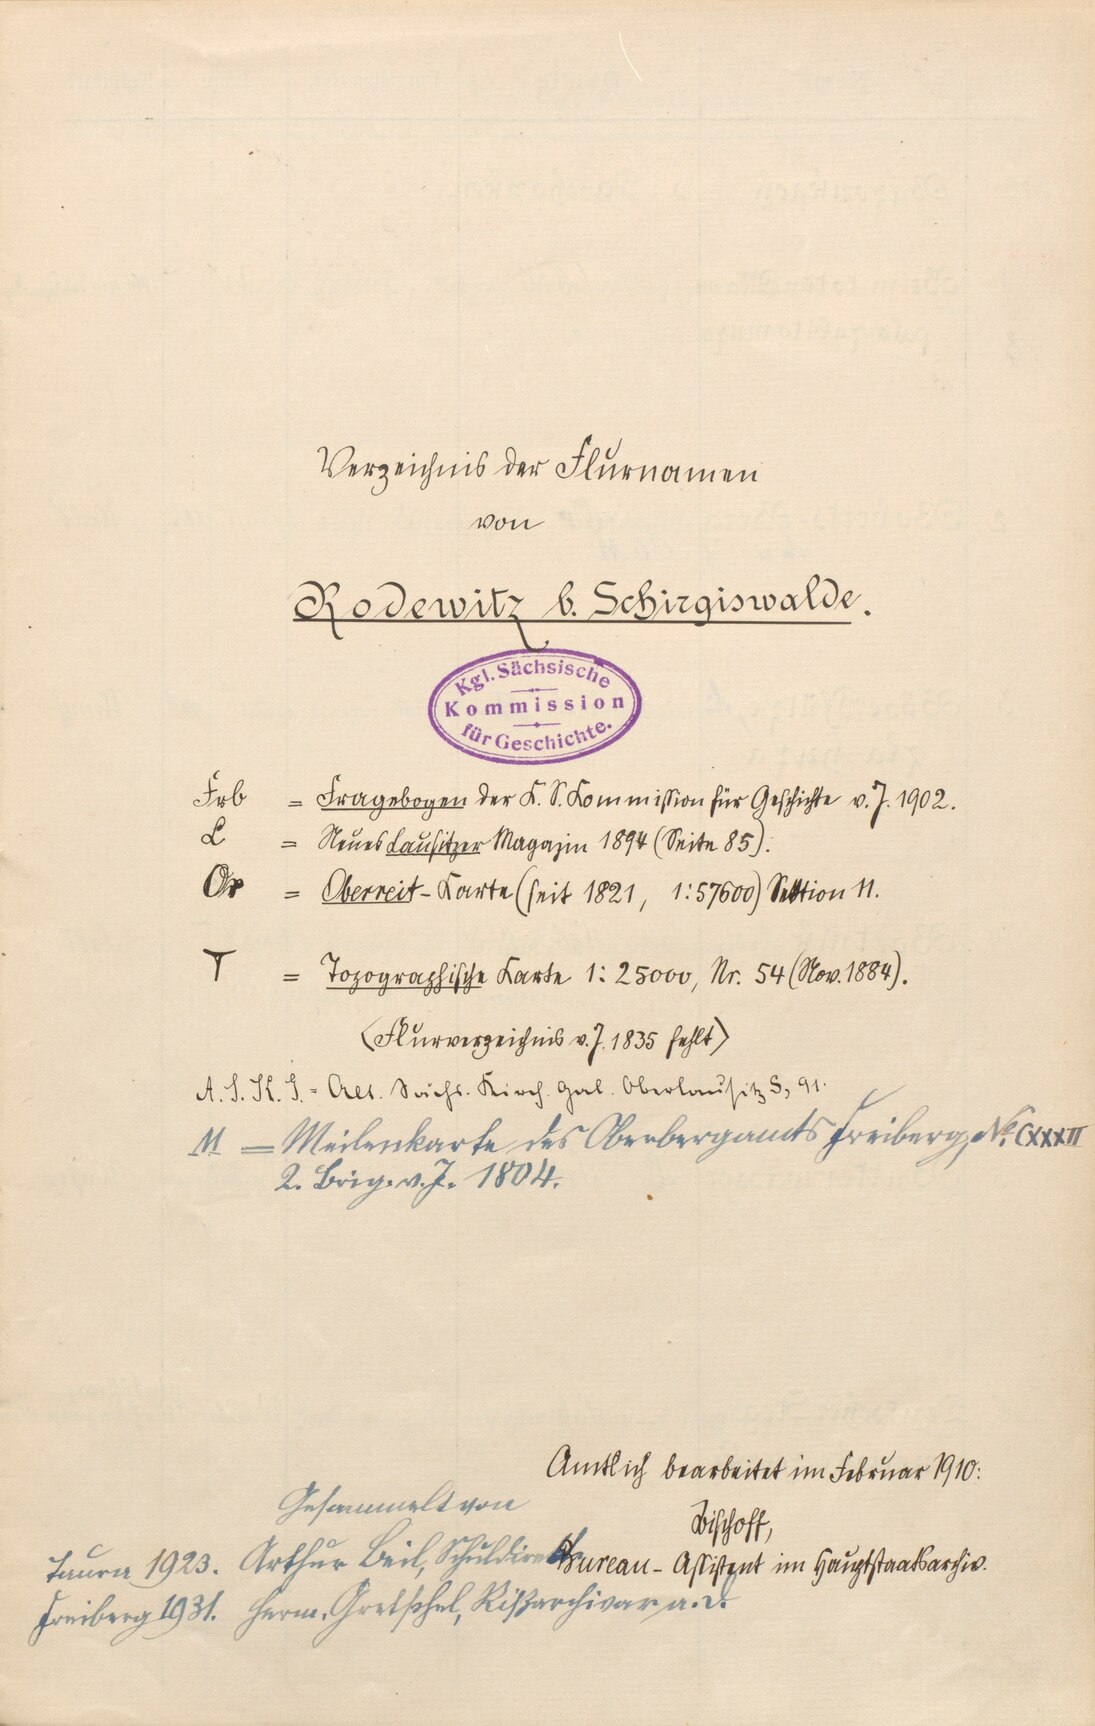 Verzeichnis der Flurnamen
von
Rodewitz b. Schirgiswalde.
Kgl. Sächsische
Kommission
für Geschichte.
Frb = Fragebogen der K. S. Kommission für Geschichte v. J. 1902.
L = Neues Lausitzer Magazin 1894 (Seite 85).
Or = Oberreit-Karte (seit 1821, 1:57600) Sektion 11.
T = Topographische Karte 1:25000, Nr. 54 (Nov. 1884).
(Flurverzeichnis v. J. 1835 fehlt)
A. S. K. G. = Alt. Sächs. Kirch. Gal. Oberlausitz S, 91.
M = Meilenkarte des Oberbergamts Freiberg, No. CXXXII
2. Brig. v. J. 1804.
Amtlich bearbeitet im Februar 1910:
Bischoff,
Bureau-Assistent im Hauptstaatsarchiv.
Gesammelt von
Taura 1923. Arthur Beil, Schuldirektor
Freiberg 1931. Herm. Gretschel, Rißarchivar a. D.